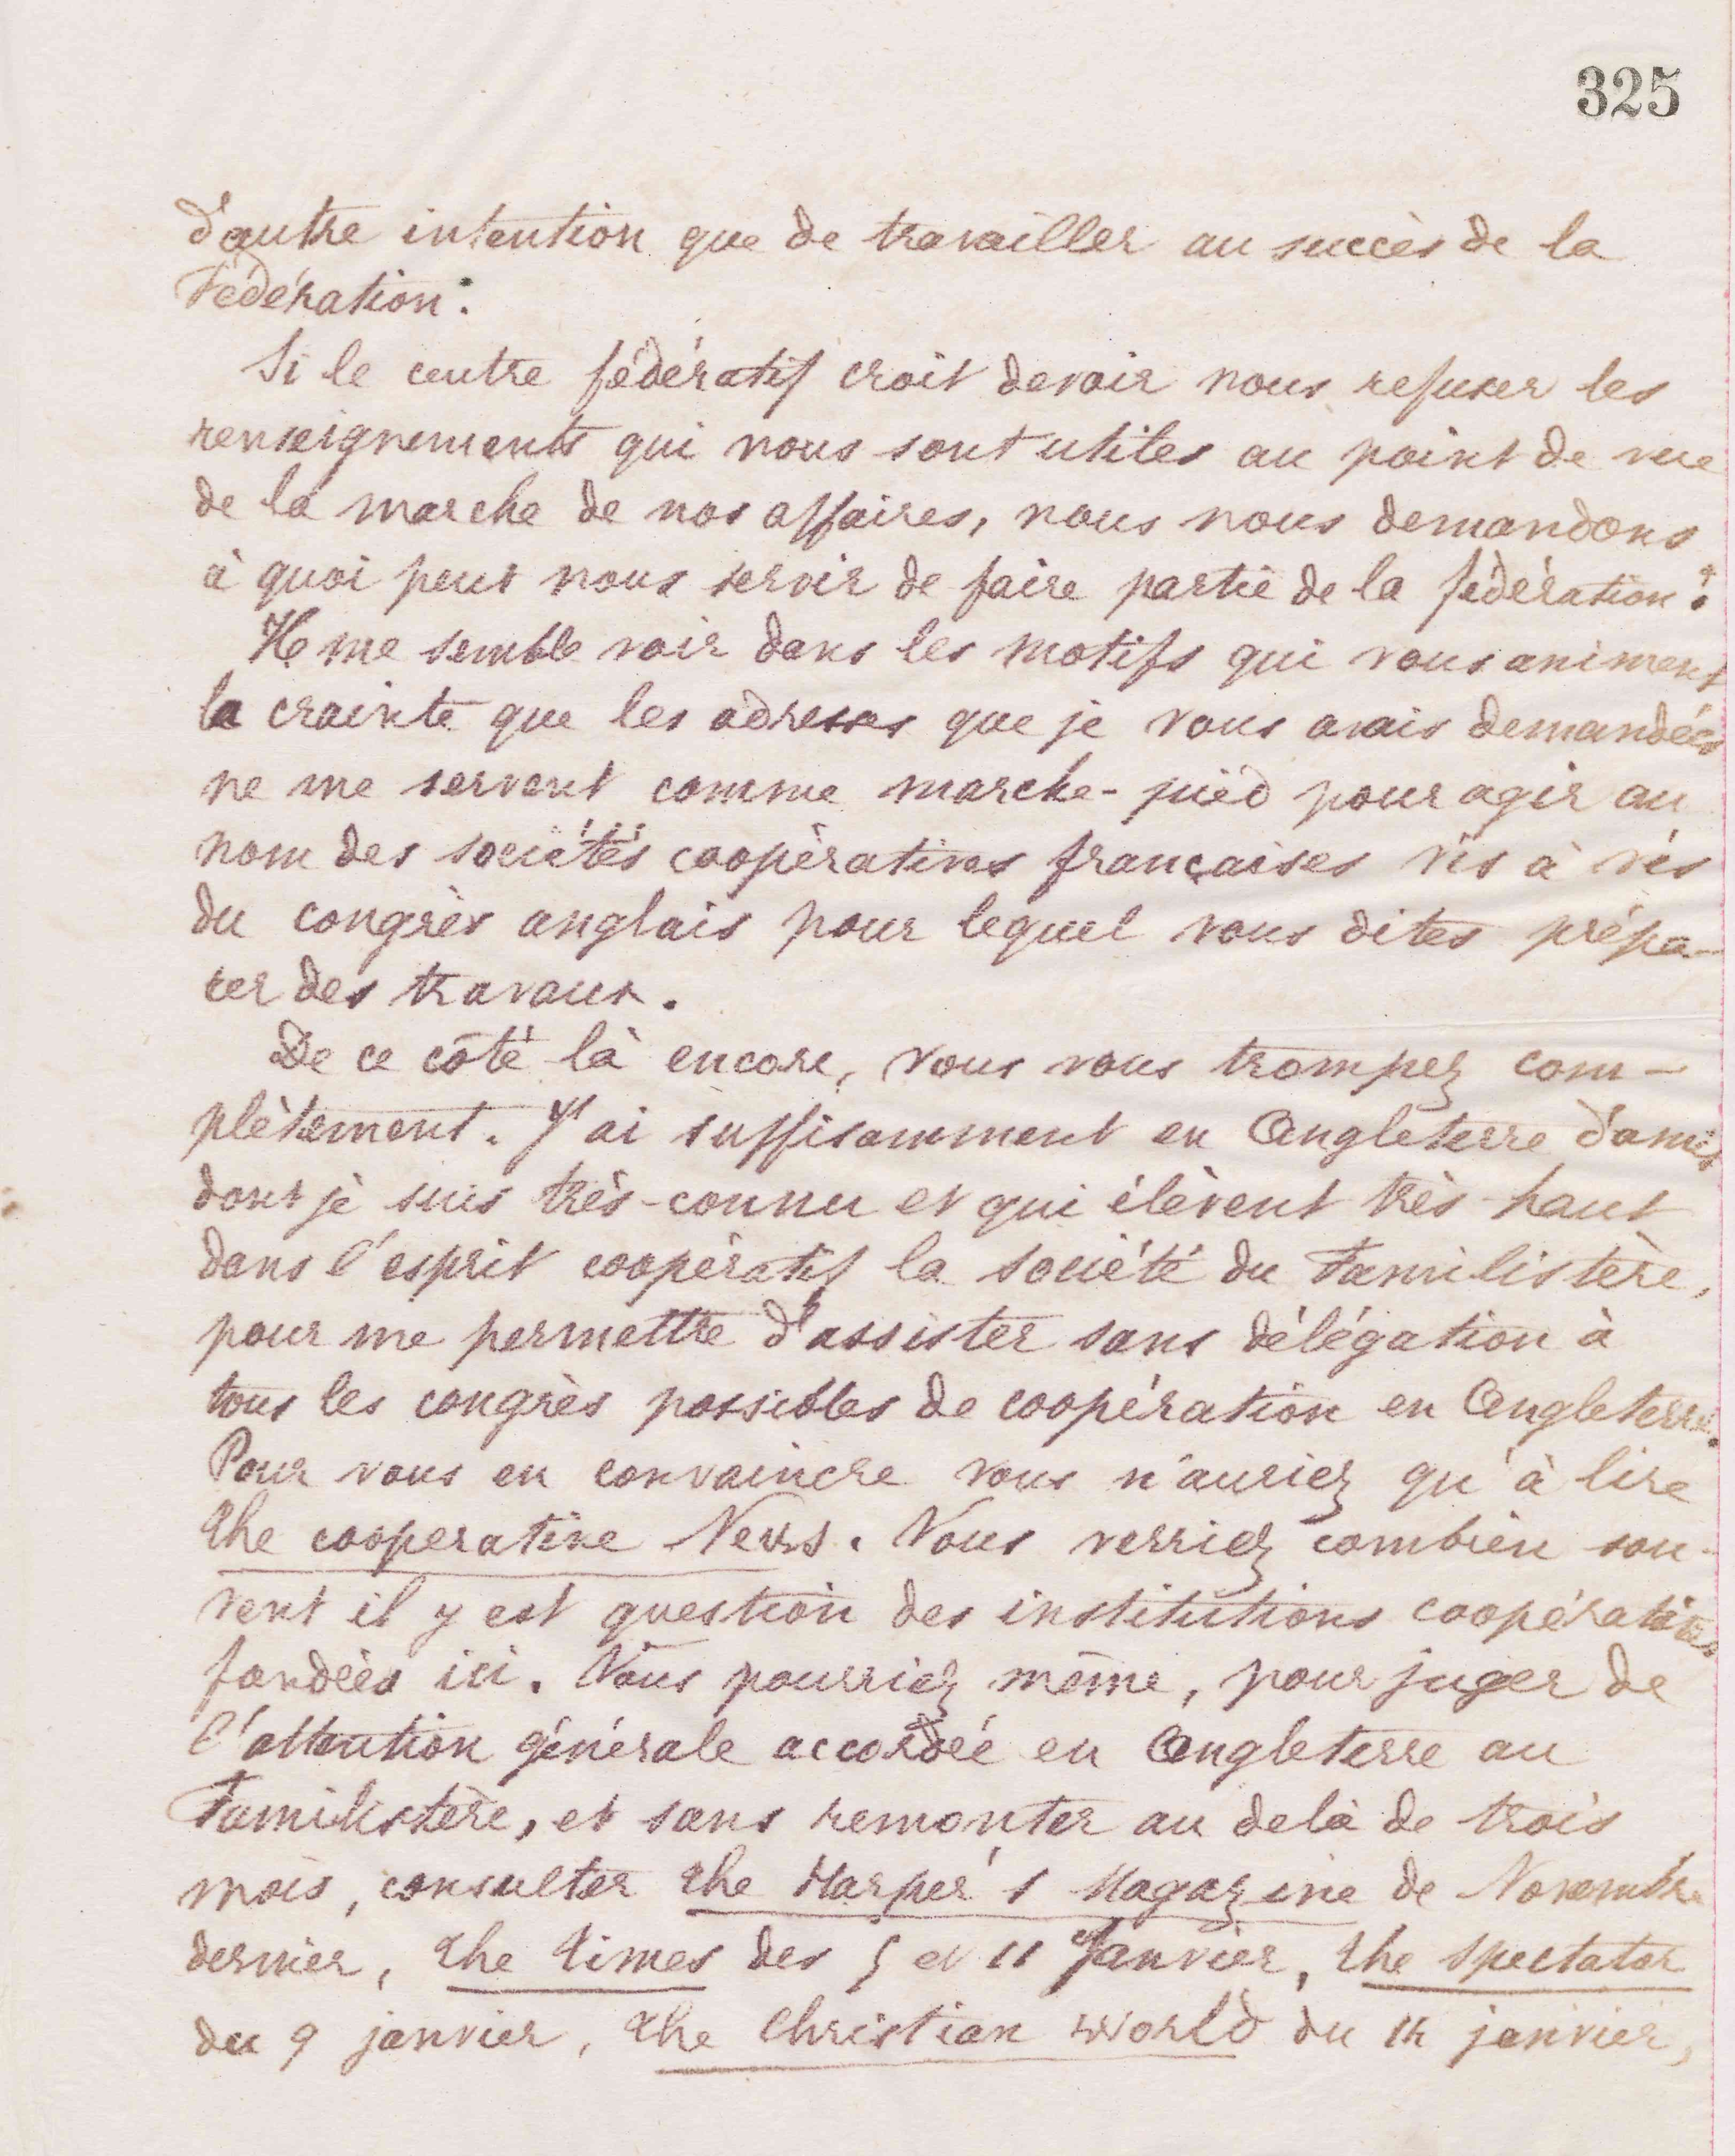 325
d'autre intention que de travailler au succès de la
Fédération.
Si le centre fédératif croit devoir nous refuser les
renseignements qui nous sont utiles au point de vue
de la marche de nos affaires, nous nous demandons
à quoi peut nous servir de faire partie de la fédération ?
Il me semble voir dans les motifs qui vous animent
la crainte que les adresses que je vous avais demandées
ne me servent comme marche-pied pour agir au
nom des sociétés coopératives françaises vis à vis
du congrès anglais pour lequel vous dites prépa-
rer des travaux.
De ce côté là encore, vous vous trompez com-
plètement. J'ai suffisamment en Angleterre d'amis
dont je suis très-connu et qui élèvent très haut
dans l'esprit coopératif la société du Familistère,
pour me permettre d'assister sans délégation à
tous les congrès possibles de coopération en Angleterre.
Pour vous en convaincre vous n'auriez qu'à lire
The cooperative News. Vous verriez combien sou-
vent il y est question des institutions coopératives
fondées ici. Vous pourriez même, pour juger de
l'attention générale accordée en Angleterre au
Familistère, et sans remonter au delà de trois
mois, consulter The Harper's Magazine de Novembre
dernier, The Times des 5 et 11 Janvier, The Spectator
du 9 janvier, The Christian World du 14 janvier,